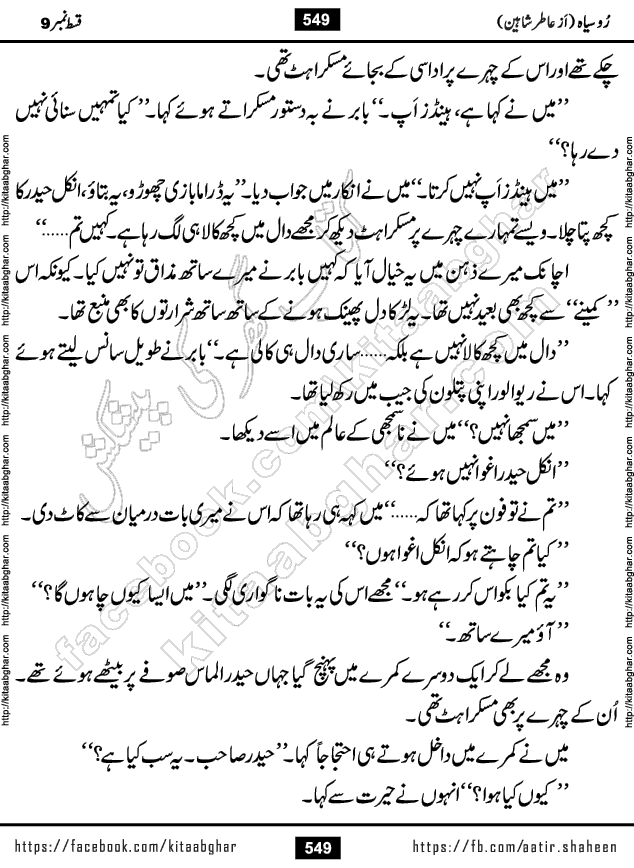 رُوسیاہ (اَز عاطر شاہین)
549
قسط نمبر 9
چکے تھے اور اس کے چہرے پر اداسی کے بجائے مسکراہٹ تھی۔
’’میں نے کہا ہے، ہینڈز اَپ۔‘‘ بابر نے بہ دستور مسکراتے ہوئے کہا۔ ’’کیا تمہیں سنائی نہیں
دے رہا؟‘‘
’’میں ہینڈز اَپ نہیں کرتا۔‘‘ میں نے انکار میں جواب دیا۔ ’’یہ ڈراما بازی چھوڑو، یہ بتاؤ، انکل حیدر کا
کچھ پتا چلا۔ ویسے تمہارے چہرے پر مسکراہٹ دیکھ کر مجھے دال میں کچھ کالا ہی لگ رہا ہے۔ کہیں تم......‘‘
اچانک میرے ذہن میں یہ خیال آیا کہ کہیں بابر نے میرے ساتھ مذاق تو نہیں کیا۔ کیونکہ اس
’’کمینے‘‘ سے کچھ بھی بعید نہیں تھا۔ یہ لڑکا دل پھینک ہونے کے ساتھ ساتھ شرارتوں کا بھی منبع تھا۔
’’دال میں کچھ کالا نہیں ہے بلکہ...... ساری دال ہی کالی ہے۔‘‘ بابر نے طویل سانس لیتے ہوئے
کہا۔ اس نے ریوالور اپنی پتلون کی جیب میں رکھ لیا تھا۔
’’میں سمجھا نہیں؟‘‘ میں نے ناسمجھی کے عالم میں اسے دیکھا۔
’’انکل حیدر اغوا نہیں ہوئے؟‘‘
’’تم نے تو فون پر کہا تھا کہ......‘‘ میں کہہ ہی رہا تھا کہ اس نے میری بات درمیان سے کاٹ دی۔
’’کیا تم چاہتے ہو کہ انکل اغوا ہوں؟‘‘
’’یہ تم کیا بکواس کر رہے ہو۔‘‘ مجھے اس کی یہ بات ناگوار ی لگی۔ ’’میں ایسا کیوں چاہوں گا؟‘‘
’’آؤ میرے ساتھ۔‘‘
وہ مجھے لے کر ایک دوسرے کمرے میں پہنچ گیا جہاں حیدر الماس صوفے پر بیٹھے ہوئے تھے۔
اُن کے چہرے پر بھی مسکراہٹ تھی۔
میں نے کمرے میں داخل ہوتے ہی احتجاجاً کہا۔ ’’حیدر صاحب۔ یہ سب کیا ہے؟‘‘
’’کیوں کیا ہوا؟‘‘ انہوں نے حیرت سے کہا۔
http://kitaabghar.com http://kitaabghar.com http://kitaabghar.com http://kitaabghar.com http://kitaabghar.com http://kitaabghar.com
http://kitaabghar.com http://kitaabghar.com http://kitaabghar.com http://kitaabghar.com http://kitaabghar.com http://kitaabghar.com
کتاب گھر کی پیشکش
facebook.com/kitaabghar
kitaabghar.com
https://facebook.com/kitaabghar
549
https://fb.com/aatir.shaheen